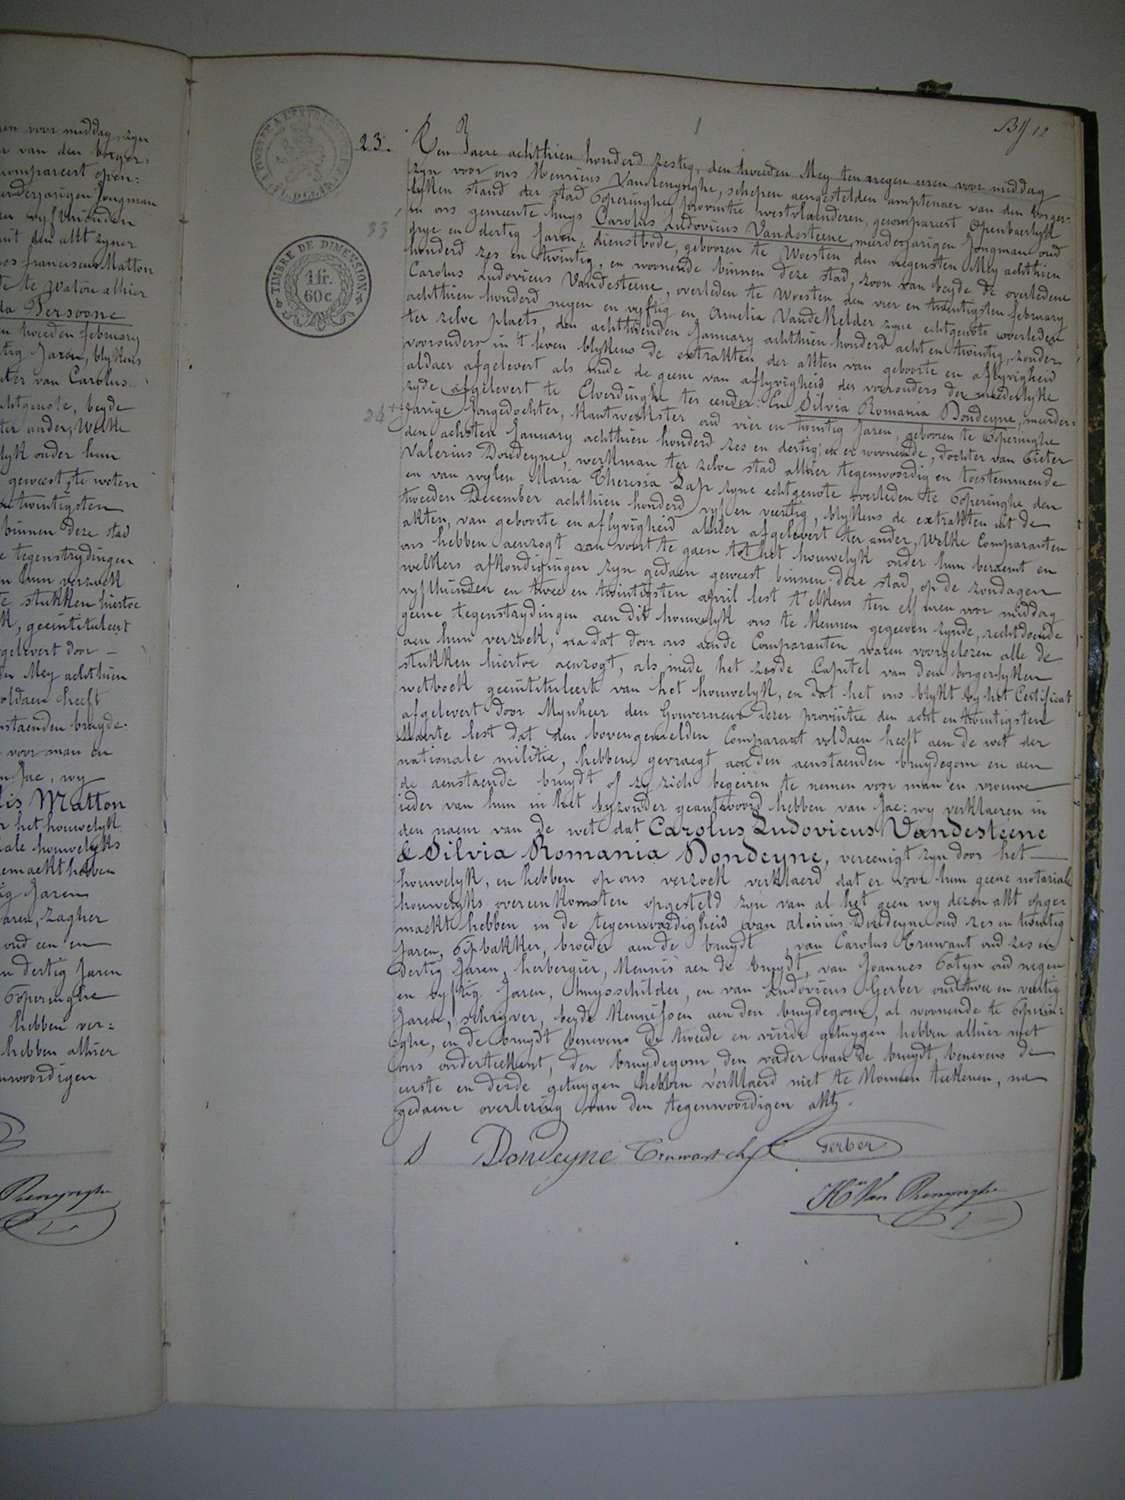 en voor middag, zyn
r van den borger-
compareert open-
inderjarigen Jongman
franciscus Matton
te Watou alhier
da Persoone
n tweeden february
tig Jaren, blykens
ter van Carolus
echtgenote, beyde
ter ander, Welke
lyk onder hun
geweest, te weten
twintigsten
binnen deze stad
e tegenstrydingen
n hun verzoek
te stukken hiertoe
k, geeintituleert
gelevert door
en Mey achthien
voldaen heeft
nstaenden bruyde-
voor man en
n Jae, wy
lis Matton
r het houwelyk
iale houwelyks
gemaekt hebben
ig Jaren
aren, zagher
oud een en
n dertig Jaren
Poperinghe
hebben ver-
hebben alhier
enwoordigen
Renynghe
23.
33
24
TIMBRE DE DIMENSION
1 fr.
60c
1
Bf 12
Den Jaere achthien honderd zestig, den tweeden Mey ten negen uren voor middag
zyn voor ons Henricus VanRenynghe, schepen aengestelden amptenaer van den borger-
lyken stand der stad Poperinghe provintie westvlaenderen, gecompareert Openbaerlyk
in ons gemeente huys Carolus Ludovicus Vandesteene, meerderjarigen Jongman oud
drye en dertig Jaren, dienstbode, gebooren te Woesten den negensten Mey achthien
honderd zes en twintig, en woonende binnen deze stad, zoon van beyde de overledene
Carolus Ludovicus Vandesteene, overleden te Woesten den vier en twintigsten february
achthien honderd negen en vyftig en Amelia VandeKelder zyne echtgenote overleden
ter zelve plaets, den achttienden January achthien honderd acht en twintig, zonder
voorouders in 't leven blykens de extrakten der akten van geboorte en aflyvigheid
aldaer afgelevert als mede de geene van aflyvigheid der voorouders der moederlyke
zyde afgelevert te Elverdinghe ter eender: En Silvia Romania Dondeyne, meerder-
jarige Jongedochter, Kantwerkster oud vier en twintig Jaren, gebooren te Poperinghe
den achsten January achthien honderd zes en dertig, en er woonende, dochter van Pieter
Valerius Dondeyne, werkman ter zelve stad alhier tegenwoordig en toestemmende
en van wylen Maria Theresia Lap zyne echtgenote overleden te Poperinghe den
tweeden December achthien honderd vyf en veertig, blykens de extrakten uit de
akten, van geboorte en aflyvigheid alhier afgelevert ter ander, Welke Comparanten
ons hebben aenzogt van voort te gaen tot het houwelyk onder hun beraemt en
welkers afkondigingen zyn gedaen geweest binnen deze stad, op de zondagen
vyfthienden en twee en twintigsten april lest t'elkens ten elf uren voor middag
geene tegenstrydingen aen dit houwelyk ons te Kennen gegeeven zynde, rechtdoende
aen hun verzoek, na dat door ons aende Comparanten waren voorgelezen alle de
stukken hiertoe aenzogt, als mede het zesde Capitel van den borgerlyken
wetboek geeintituleert van het houwelyk, en dat het ons blykt by het Certificat
afgelevert door Mynheer den Gouverneur dezer provintie den acht en twintigsten
Maerte lest dat den bovengemelden Comparant voldaen heeft aen de wet der
nationale militie, hebben gevraegt aen den aenstaenden bruydegom en aen
de aenstaende bruydt of zy zich begeiren te nemen voor man en vrouwe
ieder van hun in het byzonder geantwoord hebben van Jae: wy verklaeren in
den naem van de wet dat Carolus Ludovicus Vandesteene
& Silvia Romania Dondeyne, vereenigt zyn door het
houwelyk, en hebben op ons verzoek verklaerd dat er voor hun geene notariale
houwelyks overeenkomsten opgesteld zyn van al het geen wy dezen akt opge-
maekt hebben in de tegenwoordigheid van aloisius Dondeyne oud zes en twintig
Jaren, Pypbakker, broeder aen de bruydt, van Carolus Truwant oud zes en
dertig Jaren, herbergier, Kennis aen de bruydt, van Joannes Potyn oud negen
en vyftig Jaren, huysschilder, en van Ludovicus Gerber oud twee en veertig
Jaren, schryver, beyde Kennissen aen den bruydegom, al woonende te Poperin-
ghe, en de bruydt benevens de tweede en vierde getuygen hebben alhier met
ons onderteekent, den bruydegom, den vader van de bruydt, benevens de
eerste en derde getuygen hebben verklaerd niet te Konnen teekenen, na
gedaene overlezing van den tegenwoordigen akt.
S Dondeyne Truwant ch Gerber
Hri Van Renynghe